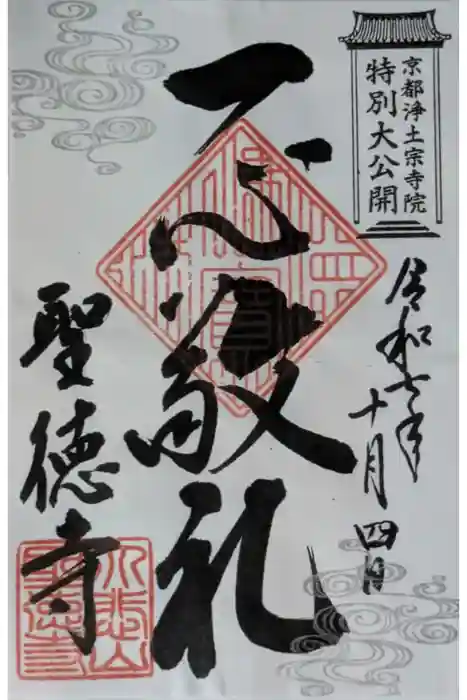 京都浄土宗寺院
特別大公開
令和七年
十月四日
一心敬礼
聖徳寺